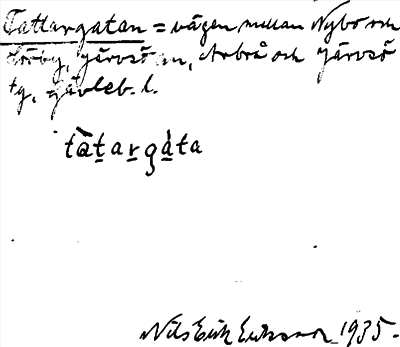 Tattargatan = vägen mellan Nybo och
Järvsö sn, Arbrå och Järvsö
tg, Gävleb. l.
tàtargáta
Nils Erik Eriksson 1935.